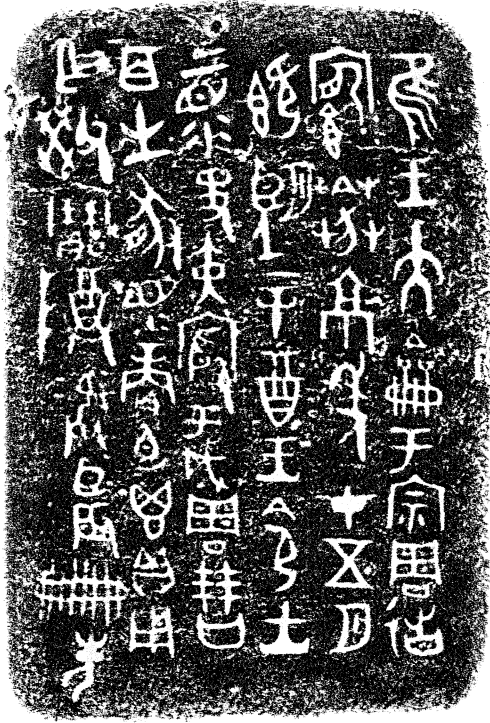 隹王大龠于宗周𢓊
京年才五月
既望辛酉王令士
上眔史寅殷于成周
百生豚眔賞卣鬯貝
用乍父癸寶尊彝臣辰冊